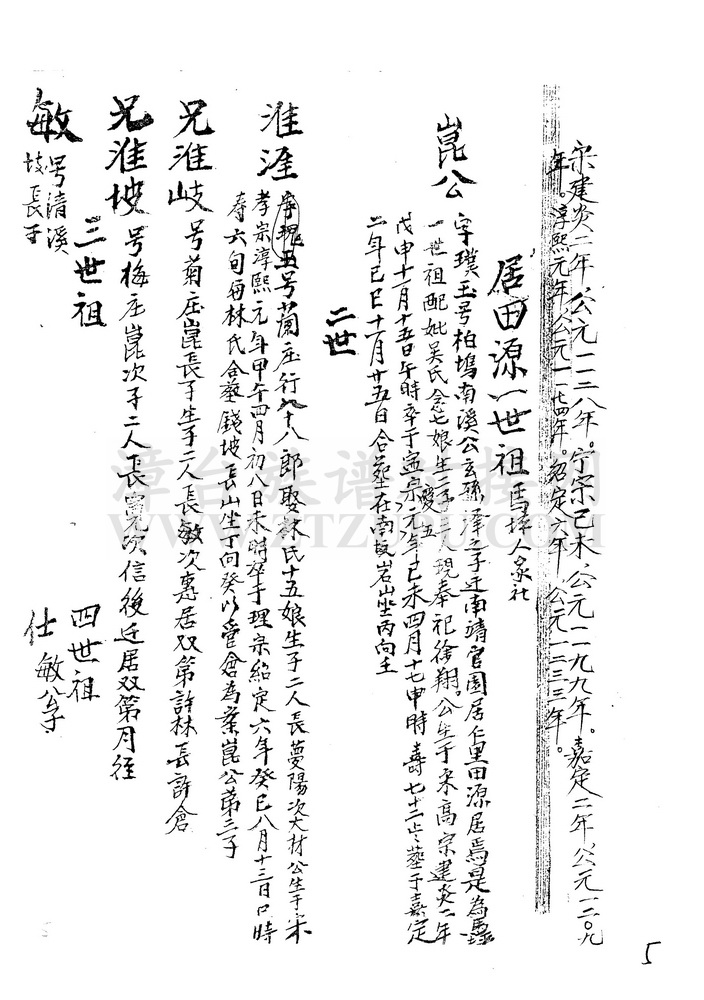 宋建炎二年公元一一二八年。宁宗己未、公元一一九九年。嘉定二年公元一二〇九
年。淳熙元年公元一一七四年。紹定六年公元一二三三年。
居田源一世祖馬坪人象社
崑公
字璞玉号柏塢南溪公玄孫澤之子迁南靖官園居仁里田源居焉是為
一世祖配妣吳氏念七娘生二子三人現奉祀徐翔。公生于宋高宗建炎二年
戊申十一月十五日午時卒于宗元年己未四月十七申時壽七十二葬于嘉定
二年己巳十一月廿五日合葬在南坂岩山坐丙向壬
二世
淮涯
字琨玉号蘭庄行九十八郎娶林氏十五娘生子二人長夢陽次大材公生于宋
孝宗淳熙元年甲午四月初八日未時卒于理宗紹定六年癸巳八月十三日口時
壽六旬毎林氏合葬錢坡長山坐丁向癸以管倉為業崑公第三子
兄淮岐
号菊庄崑長子生子二人長敏次惠居双第許林長許倉
兄淮坡
号梅庄崑次子二人長寬次信後迁居双第月徑
三世祖
敏
号清溪
坡長子
四世祖
仕
敏公子
漳台族谱对接网
WWW.ZTZUPU.COM
5